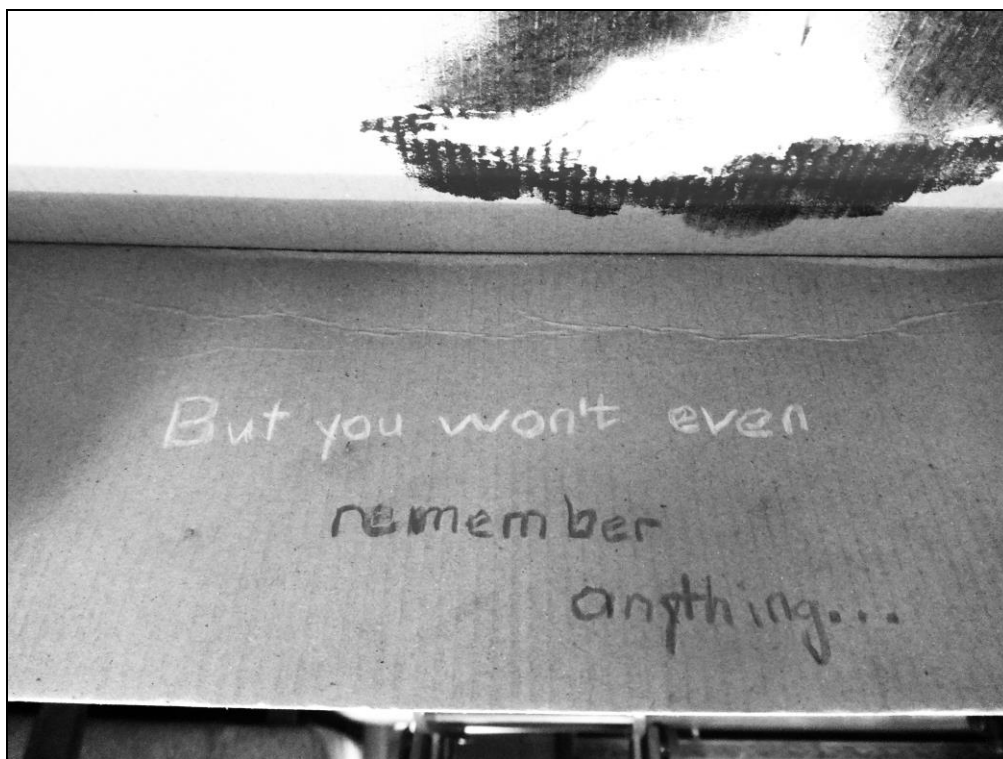 But you won't even
remember
anything...